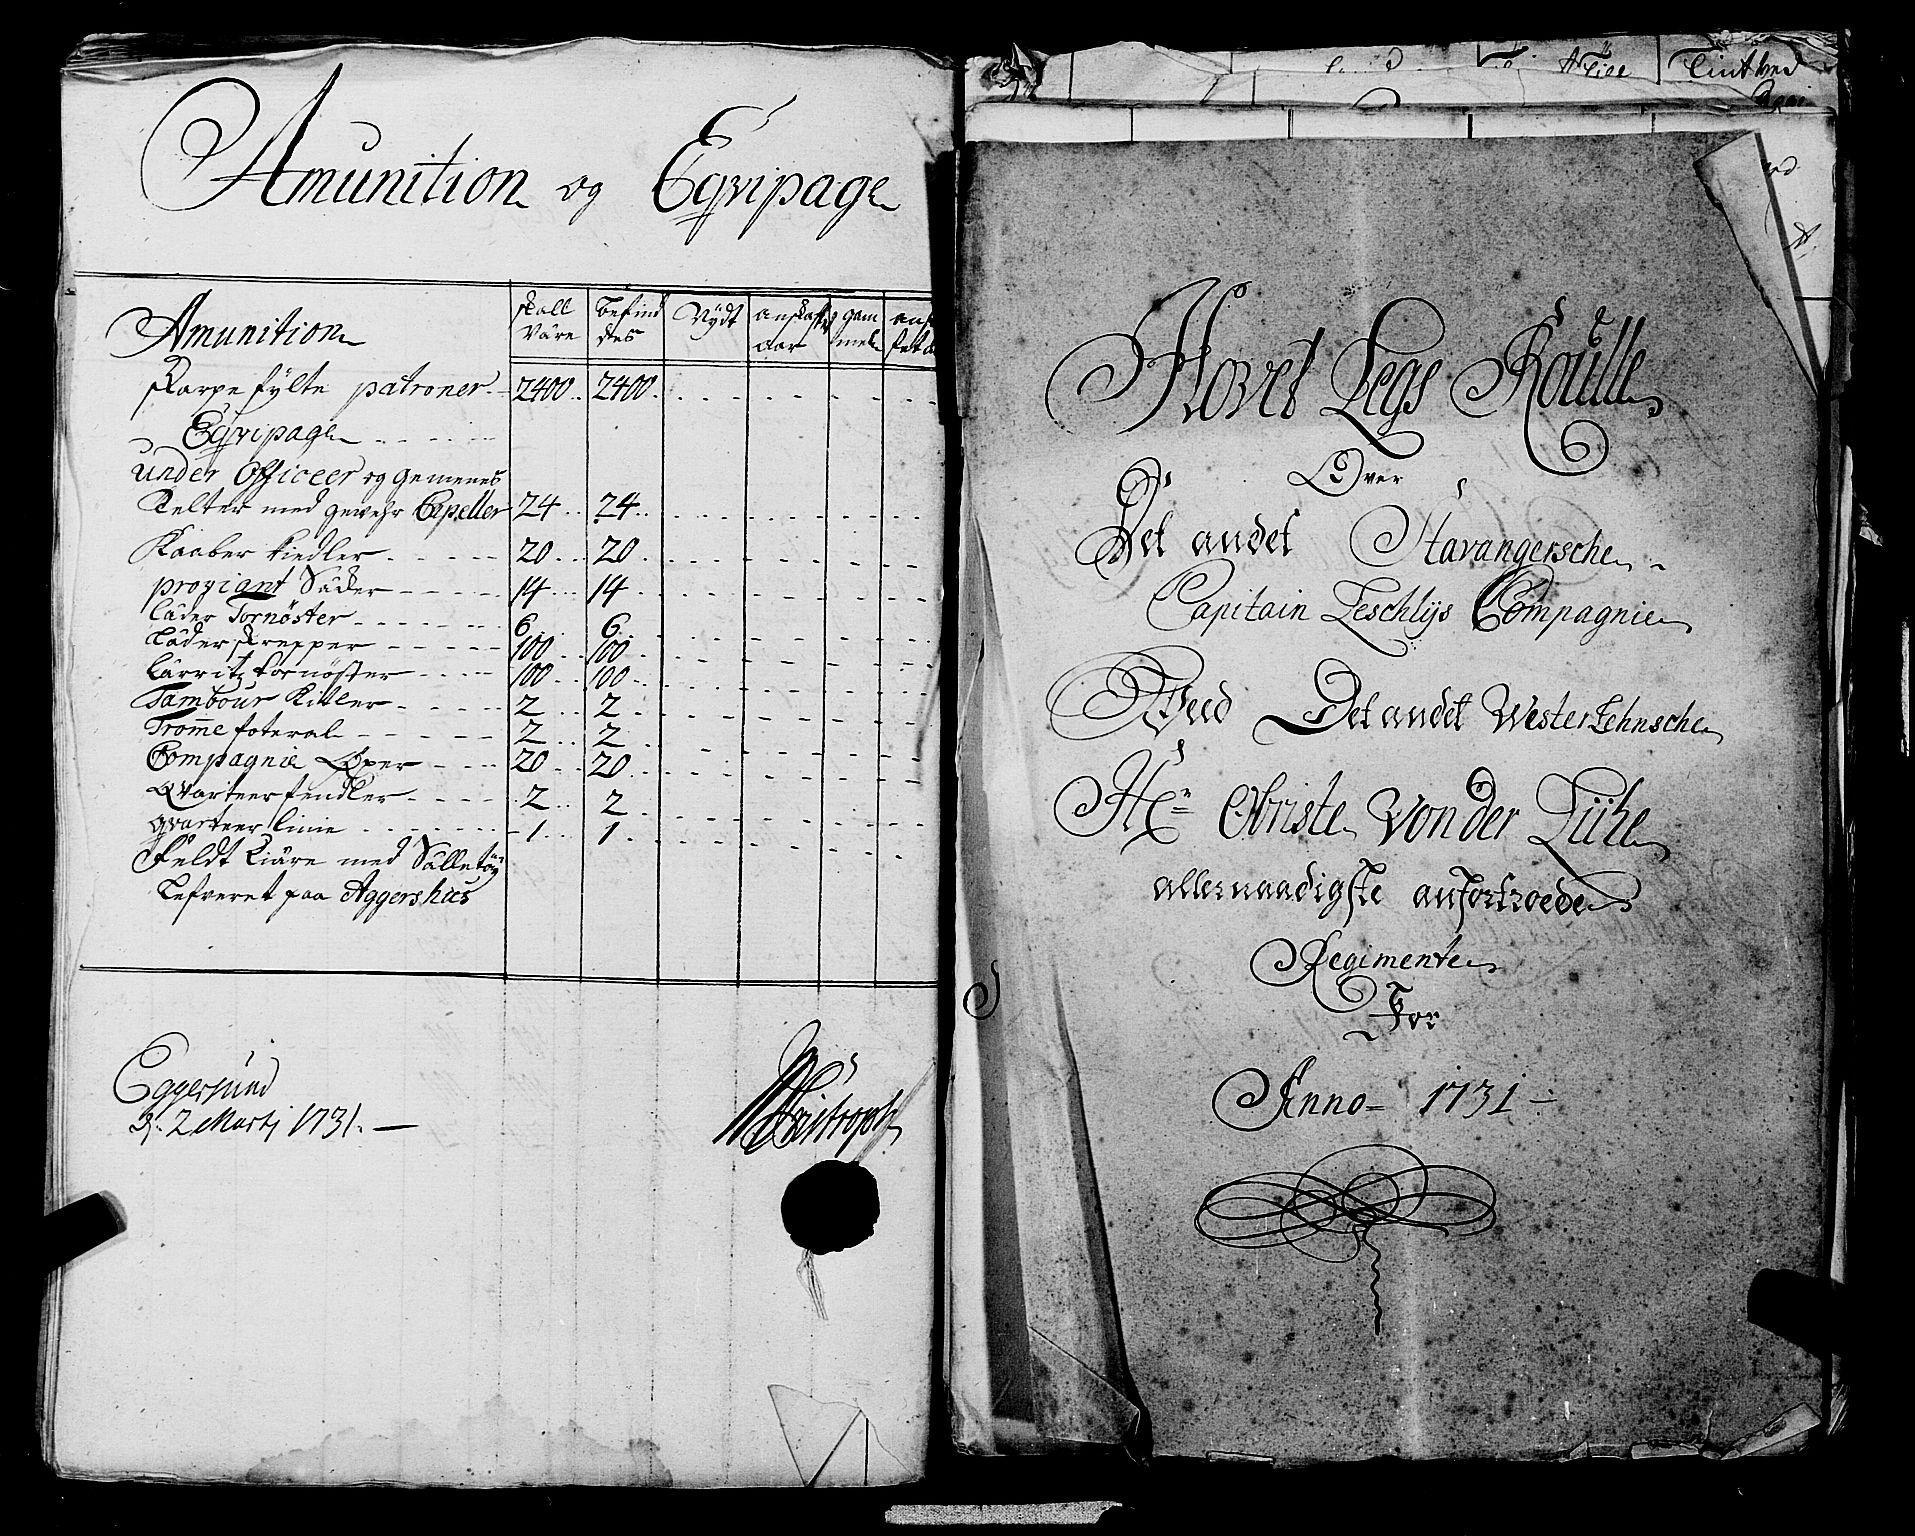 Amunition og Eqvipage
Amunition
skall være
befind des
Nÿdt
anskaffet aar
gam mel
skarpe fylte patroner 2400 2400
Eqvipage
under Officeer og gemenes
Telter med gewehr Capeller 24 24
Kaaber kiedler 20 20
proviant Säcker 14 14
läder Tornöster 6 6
Läder skrepper 100 100
Lärritz tornöster 100 100
Tambour Kitler 2 2
Tromme foteral 2 2
Compagnie Öxer 20 20
Qvarteer fendler 2 2
qvarteer linie 1 1
Feldt Kiäre med Sälletöy
Lefveret paa Aggershus
Eggersund
d. 2 Martj 1731.
Tint ved
Hovet Legs Roulle
Over
Det andet Stavangersche
Capitain Teschlÿs Compagnie
Ved Det andet Westerlehnsche
Hr Obriste von der Lühe
allernaadigste anfortroede
Regimente
For
Anno 1731